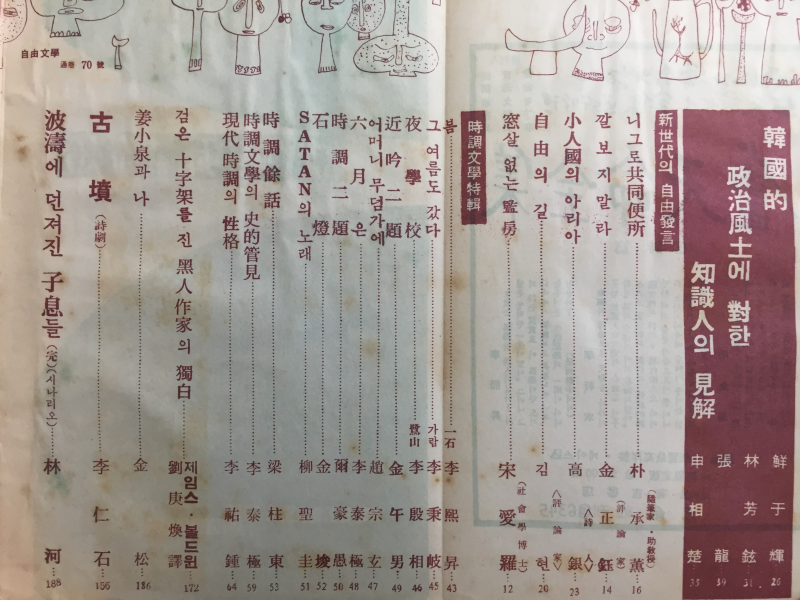 自由文學
通卷 70 號
韓國的
政治風土에 對한
知識人의 見解
鮮于輝 26
林芳鉉 31
張龍 39
申相楚 35
新世代의 自由發言
니그로共同便所 朴承薰 (隨筆家·助敎授) 16
깔보지말라 金正鈺 (評論家) 14
小人國의 아리아 高銀 (詩人) 23
自由의 길 김현 (評論家) 20
窓살 없는 監房 宋愛羅 (社會學博士) 12
時調文學特輯
봄 一石 李熙昇 43
그 여름도 갔다 가람 李秉岐 45
夜學校 鷺山 李殷相 46
近吟二題 金午男 49
어머니 무덤가에 趙宗玄 47
六月은 李泰極 48
時調二題 爾豪愚 50
石燈 金埈 52
SATAN의 노래 柳聖圭 51
時調餘話 梁柱東 53
時調文學의 史的管見 李泰極 59
現代時調의 性格 李祐鍾 64
검은 十字架를 진 黑人作家의 獨白 제임스·볼드윈 劉庚煥 譯 172
姜小泉과 나 金松 186
古墳 (詩劇) 李仁石 156
波濤에 던져진 子息들 (完) (시나리오) 林河 188